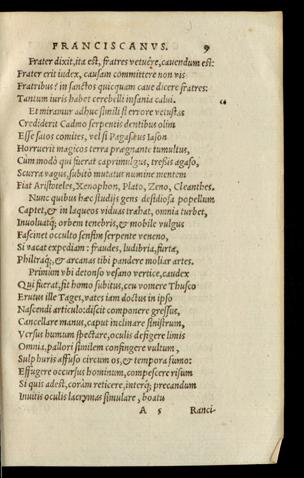 FRANCISCANVS. 9
Frater dixit, ita est, fratres vetuere, cauendum est:
Frater erit iudex, causam committere non vis
Fratribus? in sanctos quicquam caue dicere fratres:
Tantum iuris habet cerebelli insania calui.
Et miramur adhuc simili si errore vetustas
Crediderit Cadmo serpentis dentibus olim
Esse satos comites, vel si Pagasæus Iason
Horruerit magicos terra prægnante tumultus,
Cum modò qui fuerat caprimulgus, tressus agaso,
Scurra vagus, subitò mutatus numine mentem
Fiat Aristoteles, Xenophon, Plato, Zeno, Cleanthes.
Nunc quibus hæc studijs gens desidiosa popellum
Captet, & in laqueos viduas trahat, omnia turbet,
Inuoluatq; orbem tenebris, & mobile vulgus
Fascinet occulto sensim serpente veneno,
Si vacat expediam: fraudes, ludibria, furta,
Philtraq;, & arcanas tibi pandere moliar artes.
Primùm vbi detonso vesano vertice, caudex
Qui fuerat, fit homo subitus, ceu vomere Thusco
Erutus ille Tages, vates iam doctus in ipso
Nascendi articulo: discit componere gressus,
Cancellare manus, caput inclinare sinistrum,
Versus humum spectare, oculis defigere limis
Omnia, pallori similem confingere vultum,
Sulphuris affuso circum os, & tempora fumo:
Effugere occursus hominum, compescere risum
Si quis adest, coràm reticere, interq; precandum
Inuitis oculis lacrymas simulare, boatu
A 5 Ranci-